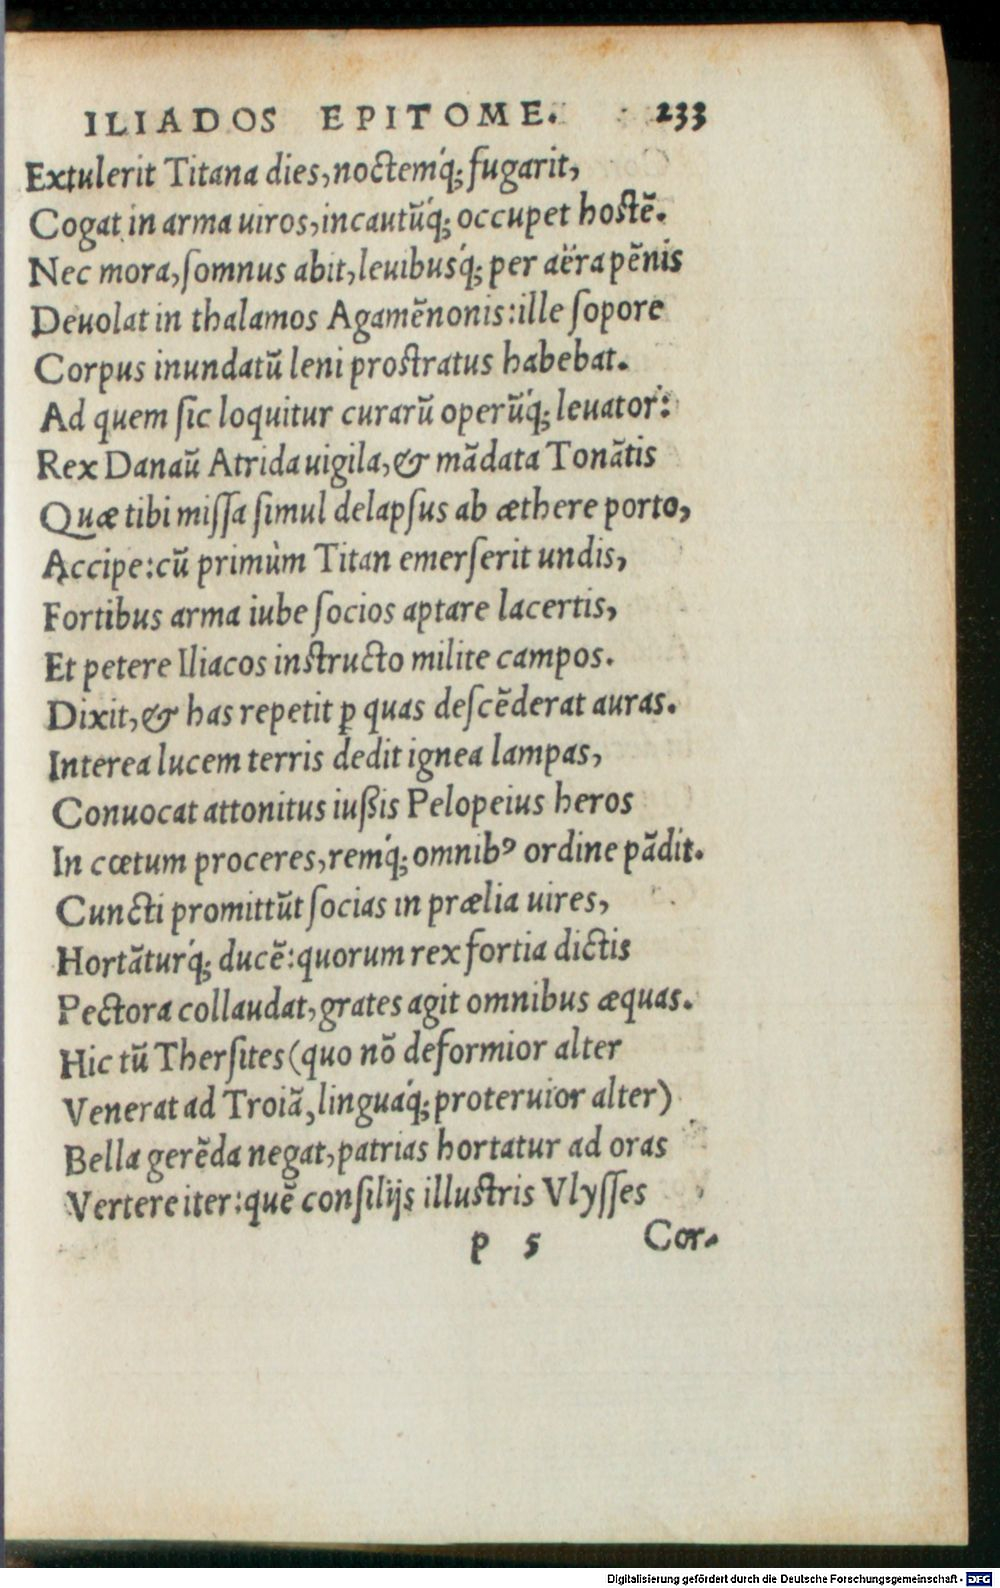 ILIADOS EPITOME. 233
Extulerit Titana dies, noctemq́; fugarit,
Cogat in arma uiros, incautũq́; occupet hostẽ.
Nec mora, ſomnus abit, leuibusq́; per aëra pẽnis
Deuolat in thalamos Agamẽnonis: ille ſopore
Corpus inundatũ leni prostratus habebat.
Ad quem ſic loquitur curarũ operũq́; leuator:
Rex Danaũ Atrida uigila, & mãdata Tonãtis
Quæ tibi miſſa ſimul delapſus ab æthere porto,
Accipe: cũ primùm Titan emerſerit undis,
Fortibus arma iube ſocios aptare lacertis,
Et petere Iliacos instructo milite campos.
Dixit, & has repetit ꝑ quas deſcẽderat auras.
Interea lucem terris dedit ignea lampas,
Conuocat attonitus iußis Pelopeius heros
In cœtum proceres, remq́; omnibꝰ ordine pãdit.
Cuncti promittũt ſocias in prælia uires,
Hortãturq́; ducẽ: quorum rex fortia dictis
Pectora collaudat, grates agit omnibus æquas.
Hic tũ Therſites (quo nõ deformior alter
Venerat ad Troiã, linguaq́; proteruior alter)
Bella gerẽda negat, patrias hortatur ad oras
Vertere iter: quẽ conſilijs illustris Vlyſſes
p 5 Cor-
Digitalisierung gefördert durch die Deutsche Forschungsgemeinschaft - DFG